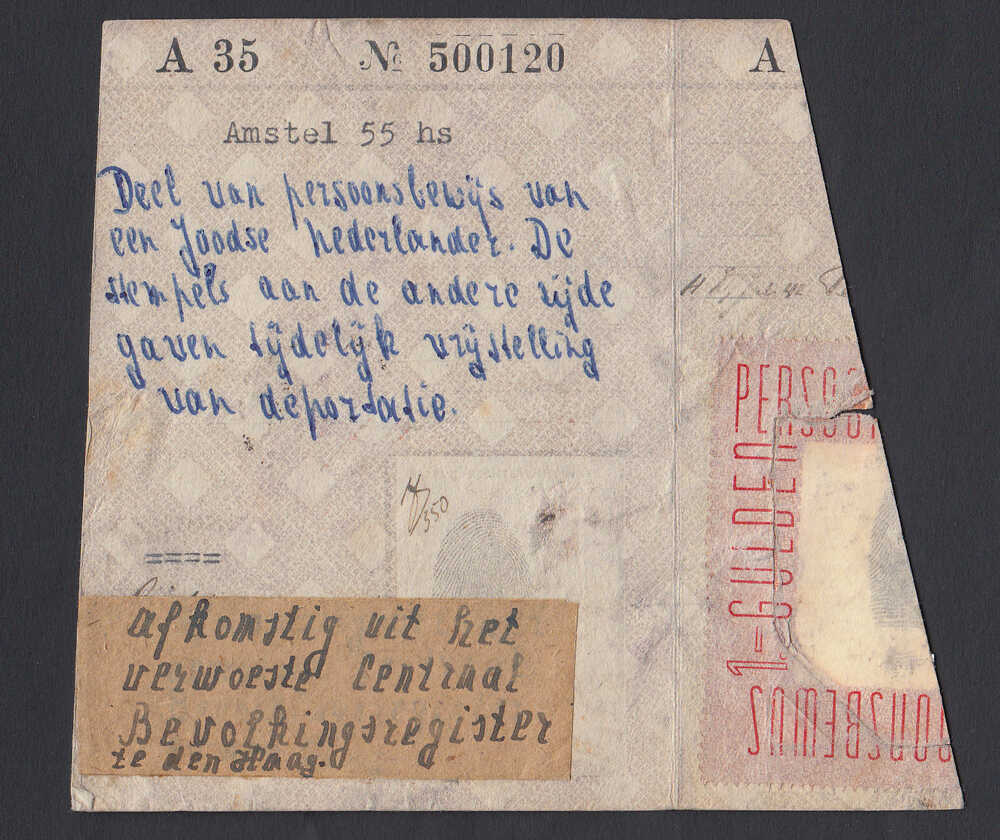 A 35 № 500120 A
Amstel 55 hs
Deel van persoonsbewijs van
een Joodse Nederlander. De
stempels aan de andere zijde
gaven tijdelijk vrijstelling
van deportatie.
14/350
afkomstig uit het
verwoeste Centraal
Bevolkingsregister
te den Haag.
PERSOO
1-GULDEN
OONSBEWIJS